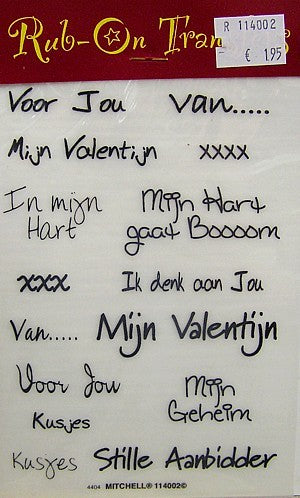 R 114002
€ 1.95
Rub-On Tran
Voor Jou van.....
Mijn Valentijn xxxx
In mijn
Hart
Mijn Hart
gaat Boooom
xxx Ik denk aan Jou
Van..... Mijn Valentijn
Voor Jou
Kusjes
Mijn
Geheim
Kusjes Stille Aanbidder
4404 MITCHELL® 114002©